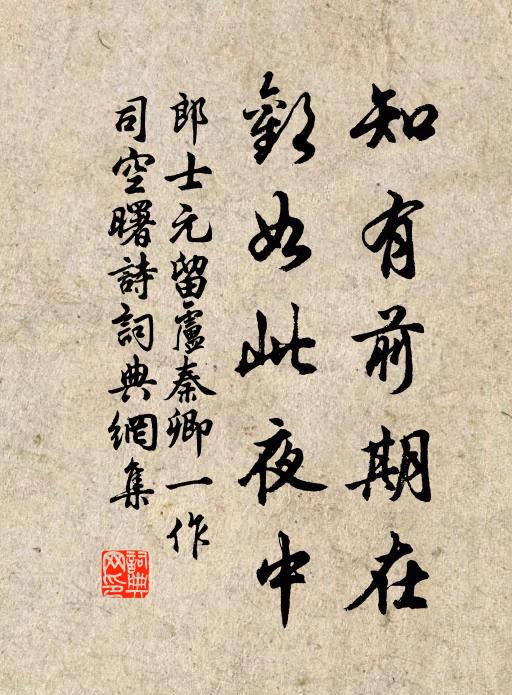 知有前期在
難如此夜中
郎士元留盧秦卿一作
司空曙詩詞典網集
詞典網印